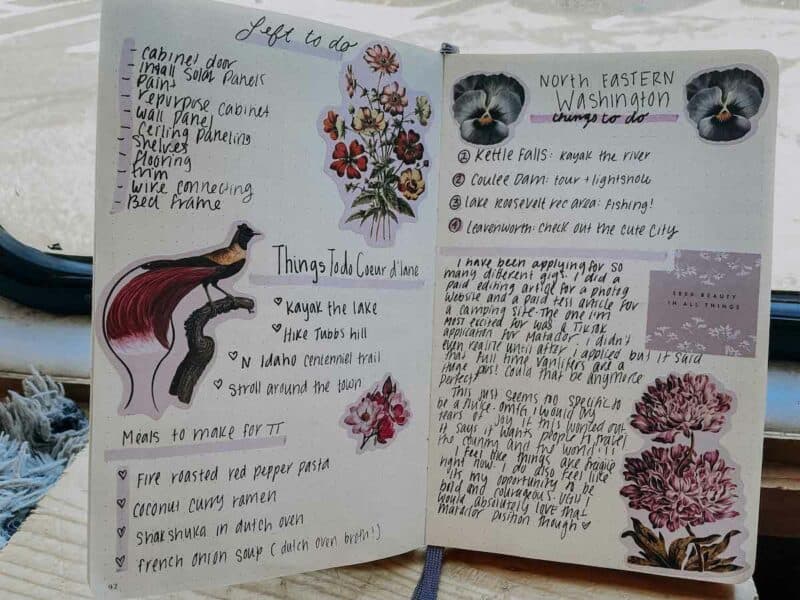 Left to do
- cabinet door
- install solar panels
- paint
- repurpose cabinet
- wall panel
- cerling paneling
- shelves
- flooring
- trim
- wire connecting
- Bed Frame
Things To do Coeur d'lane
♡ Kayak the lake
♡ Hike Tubbs hill
♡ N Idaho centenniel trail
♡ Stroll around the town
Meals to make for TT
♡ Fire roasted red pepper pasta
♡ Coconut curry ramen
♡ Shakshuka in dutch oven
♡ french onion soup (dutch oven broth!)
92
North EASTERN
Washington
things to do
① Kettle Falls: kayak the river
② Coulee Dam: tour + lightshow
③ Lake Roosevelt rec area: fishing!
④ Leavenworth: check out the cute City
I have been applying for so
many different gigs. I did a
paid editing article for a photog
website and a paid test article for
a camping site. The one I'm
most excited for was a Tiktok
application for Matador. I didn't
even realize until after I applied but it said
that full time vanlifers are a
huge plus! Could that be anymore
perfect
This just seems so specific to
be a fluke. omg, I would cry
tears of joy if this worked out
it says it wants people to travel
the country and the world!!!
I feel like things are fragile
right now. I do also feel like
its my opportunity to be
bold and courageous. Ugh I
would absolutely love that
matador position though ♥
SEEK BEAUTY
IN ALL THINGS